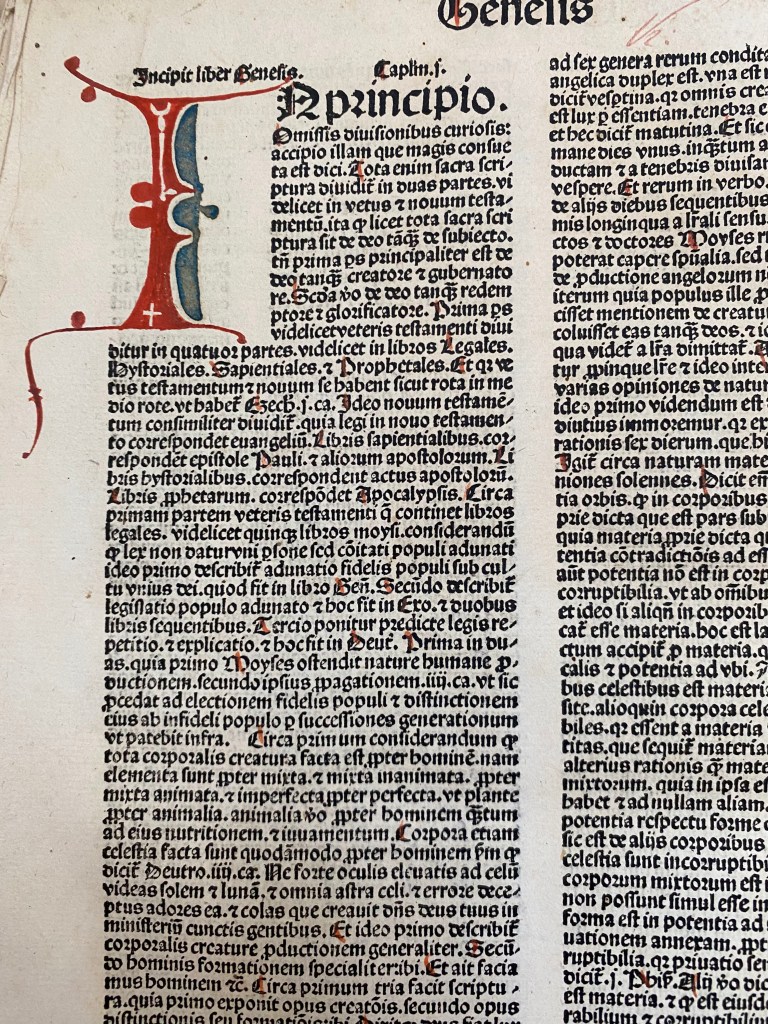 Genesis
Incipit liber Genesis.
Caplm.j.
IN principio.
Omissis diuisionibus curiosis:
accipio illam que magis consue
ta est dici. Tota enim sacra scri⸗
ptura diuidit̃ in duas partes. vi
delicet in vetus ⁊ nouum testa⸗
mentũ. ita ꝙ licet tota sacra scri
ptura sit de deo tãꝗ̃ de subiecto.
tñ prima ps principaliter est de
deo tanꝗ̃ creatore ⁊ gubernato
re. Scďa ṽo de deo tanꝗ̃ redem
ptore ⁊ glorificatore. Prima ps
videlicet veteris testamenti diui
ditur in quatuor partes. videlicet in libros Legales.
Hystoriales. Sapientiales. ⁊ Prophetales. Et qr ve
tus testamentum ⁊ nouum se habent sicut rota in me
dio rote. vt habet̃ Ezech. j. ca. Ideo nouum testamē⸗
tum consimiliter diuidit̃. quia legi in nouo testamen⸗
to correspondet euangeliũ. Libris sapientialibus. cor⸗
respondẽt epistole Pauli. ⁊ aliorum apostolorum. Li
bris hystorialibus. correspondent actus apostolorũ.
Libris ꝓphetarum. correspõdet Apocalypsis. Circa
primam partem veteris testamenti q̃ continet libros
legales. videlicet quinqꝫ libros moysi. considerandũ
ꝙ lex non datur vni ꝑsone sed cõitati populi adunati
ideo primo describit̃ adunatio fidelis populi sub cul⸗
tu vnius dei. quod fit in libro Geñ. Secũdo describit̃
legislatio populo adunato ⁊ hoc fit in Exo. ⁊ duobus
libris sequentibus. Tercio ponitur predicte legis re⸗
petitio. ⁊ explicatio. ⁊ hoc fit in Deut̃. Prima in du⸗
as. quia primo Moyses ostendit nature humane ꝓ⸗
ductionem. secundo ipsius ꝓpagationem. iiij. ca. vt sic
ꝓcedat ad electionem fidelis populi ⁊ distinctionem
eius ab infideli populo ꝑ successiones generationum
vt patebit infra. Circa primum considerandum ꝙ
tota corporalis creatura facta est ꝓpter hominẽ. nam
elementa sunt ꝓpter mixta. ⁊ mixta inanimata. ꝓpter
mixta animata. ⁊ imperfecta ꝓpter perfecta. vt plante
ꝓpter animalia. animalia ṽo ꝓpter hominem ꝗ̃tum
ad eius nutritionem. ⁊ iuuamentum. Corpora etiam
celestia facta sunt quodãmodo ꝓpter hominem ꝑm ꝙ
dicit̃ Deutro. iiij. ca. Ne forte oculis eleuatis ad celũ
videas solem ⁊ lunã. ⁊ omnia astra celi. ⁊ errore dece⸗
ptus adores ea. ⁊ colas que creauit dñs deus tuus in
ministeriũ cunctis gentibus. Et ideo primo describit̃
corporalis creature ꝓductionem generaliter. Secũ⸗
do hominis formationem specialiter ibi. Et ait facia
mus hominem ⁊c̃. Circa primum tria facit scriptu⸗
ra. quia primo exponit opus creatõis. secundo opus
ad sex genera rerum condita
angelica duplex est. vna est
dicit̃ vesꝑtina. qr omnis
est lux ꝑ essentiam. tenebra
et hec dicit̃ matutina. Et sic
mane dies vnus. inꝗ̃tum a
ductam ⁊ a tenebris
vespere. Et rerum in verbo.
de alijs diebus sequentibus
mis longinqua a lr̃ali sensu
ctos ⁊ doctores Moyses
poterat capere spũalia. sed
de ꝓductione angelorum
iterum quia populus ille
cisset mentionem de
coluisset eas tanꝗ̃ deos. ⁊
qua videt̃ a lr̃a dimittat̃.
tur ꝓpinque lr̃e ⁊ ideo
varias opiniones de
ideo primo videndum est
diutius immoremur. qr
rationis sex dierum. que
Igit̃ circa naturam
niones solennes. Dicit em̃
tia orbis. ꝙ in corporibus
prie dicta que est pars
quia materia ꝓprie dicta
tentia cõtradictiõis ad
aũt potentia nõ est in
corruptibilia. vt ab om̃ibus
et ideo si aliqñ in
cat̃ esse materia. hoc est
ctum accipit̃ ꝓ materia.
calis ⁊ potentia ad vbi.
bus celestibus est
site. alioquin corpora
biles. qr essent a materia
titas. que sequit̃
alterius rationis ꝗ̃
mixtorum. quia in ipsa
habet ⁊ ad nullam aliam.
potentia respectu forme
sic est de alijs corporibus
celestia sunt
corporum mixtorum est
non possunt simul esse in
forma est in potentia ad
uationem annexam.
ruptibilia. qr priuatio
dicit̃. j. Phiẽ. Alij ṽo
est materia. ⁊ ꝙ est
rabilium ⁊